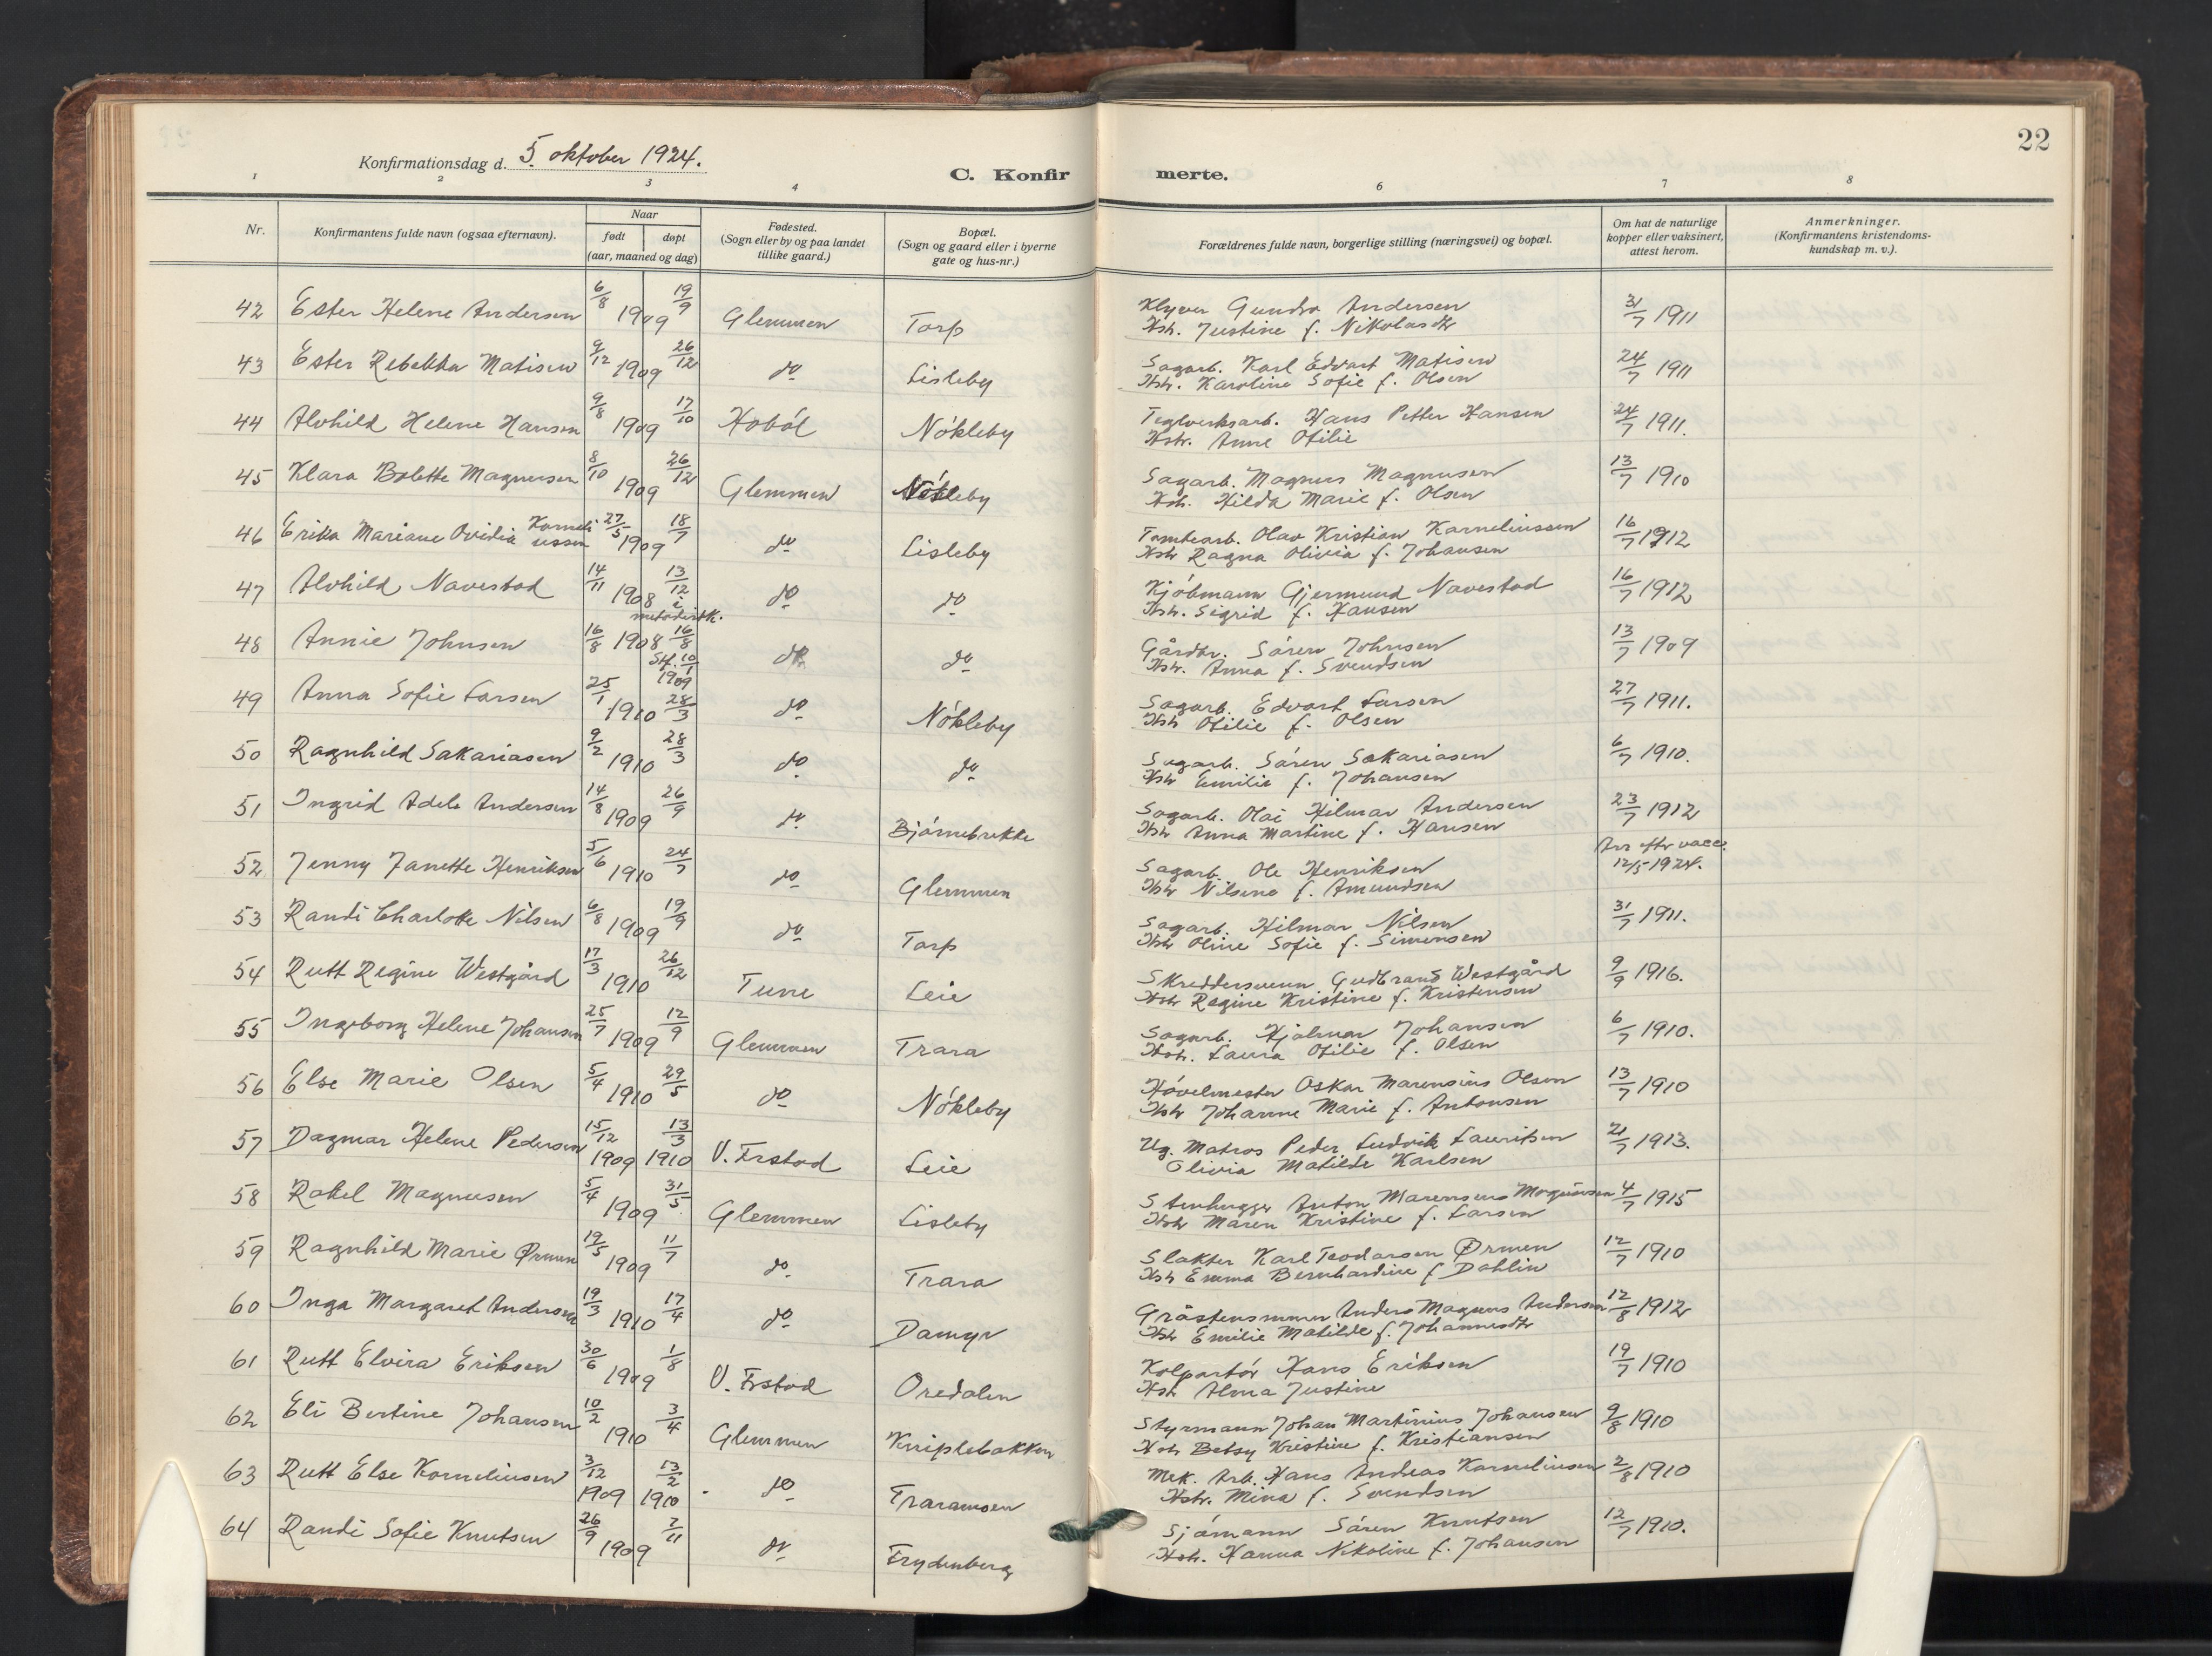 22
Konfirmationsdag d. 5. oktober 1924.
C. Konfir merte.
1 2 3 4 6 7 8
Nr.
Konfirmantens fulde navn (ogsaa efternavn).
Naar
født døpt
(aar, maaned og dag)
Fødested.
(Sogn eller by og paa landet
tillike gaard.)
Bopæl.
(Sogn og gaard eller i byerne
gate og hus-nr.)
Forældrenes fulde navn, borgerlige stilling (næringsvei) og bopæl.
Om hat de naturlige
kopper eller vaksinert,
attest herom.
Anmerkninger.
(Konfirmantens kristendoms-
kundskap m. v.).
42 Ester Helene Andersen 6/8 1909 19/9 Glemmen Torp Klyver Gundro Andersen 31/7 1911
Hstr. Justine f. Nikolasdtr
43 Ester Rebekka Matisen 9/12 1909 26/12 do Lisleby Sagarb. Karl Edvart Matisen 24/7 1911
Hstr. Karoline Sofie f. Olsen
44 Alvhild Helene Hansen 9/8 1909 17/10 Hobøl Nökleby Teglverksarb. Hans Petter Hansen 24/7 1911.
Hstr. Anne Otilie
45 Klara Bolette Magnusen 8/10 1909 26/12 Glemmen Nökleby Sagarb. Magnus Magnusen 13/7 1910
Hstr. Hilda Marie f. Olsen
46 Erika Mariane Ovidia Korneliussen 27/5 1909 18/7 do Lisleby Tomtearb. Olav Kristian Korneliussen 16/7 1912
Hstr Ragna Olivia f. Johansen
47 Alvhild Navestad 14/11 1908 13/12 i metodistk. do do Kjöbmann Gjermund Navestad 16/7 1912
Hstr. Sigrid f. Hansen
48 Annie Johnsen 16/8 1908 16/8 Stf. 10/1 1909 do do Gårdbr. Sören Johnsen 13/7 1909
Hstr. Anna f. Svendsen
49 Anna Sofie Larsen 25/1 1910 28/3 do Nökleby Sagarb. Edvart Larsen 27/7 1911.
Hstr Otilie f. Olsen
50 Ragnhild Sakariasen 9/2 1910 28/3 do do Sagarb. Sören Sakariasen 6/7 1910.
Hstr Emilie f. Johansen
51 Ingrid Adele Andersen 14/8 1909 26/9 do Björnebrekke Sagarb. Olai Hilmar Andersen 23/7 1912
Hstr Anna Martine f. Hansen
52 Jenny Janette Henriksen 5/6 1910 24/7 do Glemmen Sagarb. Ole Henriksen eftr vacc. 12/5-1924.
Hstr Nilsine f. Amundsen
53 Randi Charlotte Nilsen 6/8 1909 19/9 do Torp Sagarb. Hilmar Nilsen 31/7 1911.
Hstr Oline Sofie f. Simensen
54 Rutt Regine Westgård 17/3 1910 26/12 Tune Leie Skreddersvenn Gudbrand Westgård 9/9 1916.
Hstr Regine Kristine f. Kristensen
55 Ingeborg Helene Johansen 25/7 1909 12/9 Glemmen Trara Sagarb. Hjalmar Johansen 6/7 1910.
Hstr. Laura Otilie f. Olsen
56 Else Marie Olsen 5/4 1910 29/5 do Nökleby Hövelmester Oskar Marensius Olsen 13/7 1910
Hstr Johanne Marie f. Antonsen
57 Dagmar Helene Pedersen 15/12 1909 13/3 1910 V. Frstad Leie Ug. Matros Peder Ludvik Lauritsen 21/7 1913.
Olivia Matilde Karlsen
58 Rakel Magnusen 5/4 1909 31/5 Glemmen Lisleby Stenhugger Anton Marensius Magnusen 4/7 1915
Hstr Maren Kristine f. Larsen
59 Ragnhild Marie Ørmen 19/5 1909 11/7 do Trara Slakter Karl Teodorsen Ørmen 12/7 1910
Hstr Emma Bernhardine f. Dahlin
60 Inga Margaret Andersen 19/3 1910 17/4 do Damyr Gråstensmurer Anders Magnus Andersen 12/8 1912
Hstr Emilie Matilde f. Johannesdtr
61 Rutt Elvira Eriksen 30/6 1909 1/8 V. Frstad Oredalen Kolportör Hans Eriksen 19/7 1910
Hstr Alma Justine
62 Eli Bertine Johansen 10/2 1910 3/4 Glemmen Kniplebakken Styrmann Johan Martinius Johansen 9/8 1910
Hstr Betsy Kristine f. Kristiansen
63 Rutt Else Korneliusen 3/12 1909 13/2 1910 do Traramoen Mek. Arb. Hans Andreas Korneliusen 2/8 1910
Hstr. Mina f. Svendsen
64 Randi Sofie Knutsen 26/9 1909 7/11 do Frydenberg Sjömann Sören Knutsen 12/7 1910.
Hstr. Hanna Nikoline f. Johansen